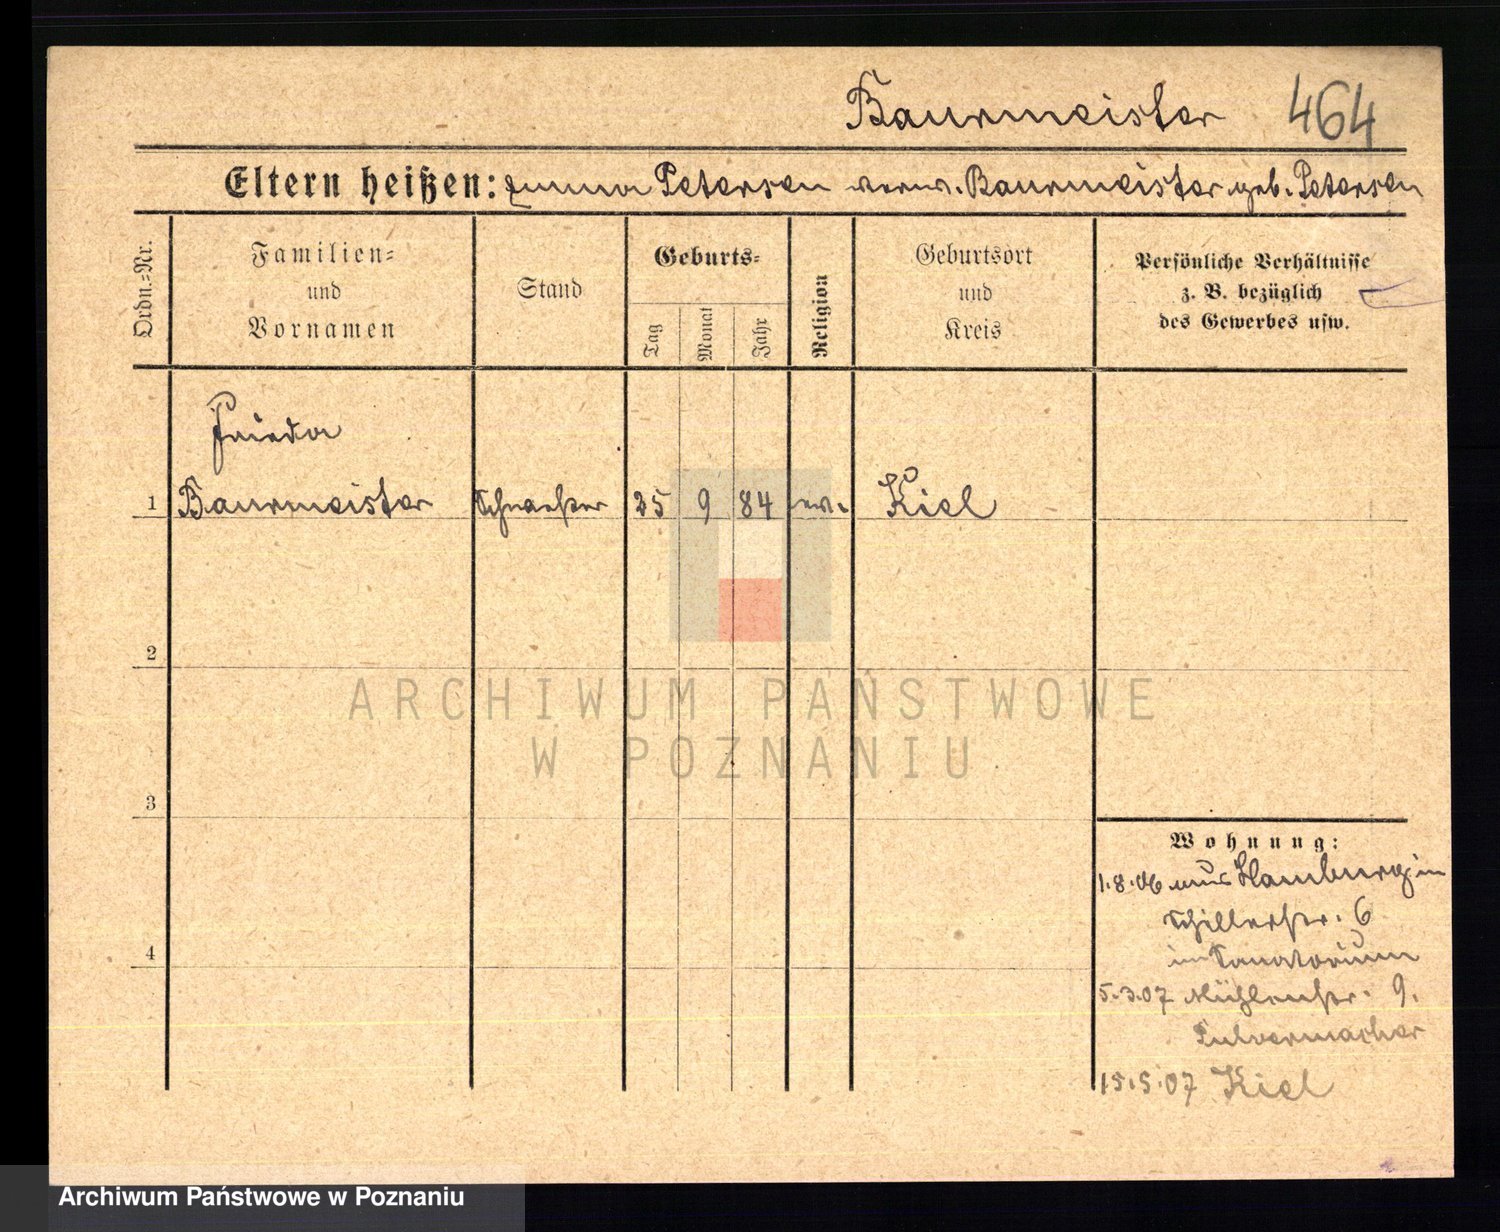 Baurmeister 464
Eltern heißen: Emma Petersen verw. Baurmeister geb. Petersen
Ordn.-Nr.
Familien-
und
Vornamen
Stand
Geburts-
Tag
Monat
Jahr
Religion
Geburtsort
und
Kreis
Persönliche Verhältnisse
z. B. bezüglich
des Gewerbes usw.
Frieda
1 Baurmeister Schwester 25 9 84 ev. Kiel
2
3
4
Wohnung:
1.8.06 aus Hamburg in
Schillerstr. 6
im Sanatorium
5.3.07 Mühlenstr. 9.
Pulvermacher
15.5.07 Kiel
ARCHIWUM PAŃSTWOWE
W POZNANIU
Archiwum Państwowe w Poznaniu